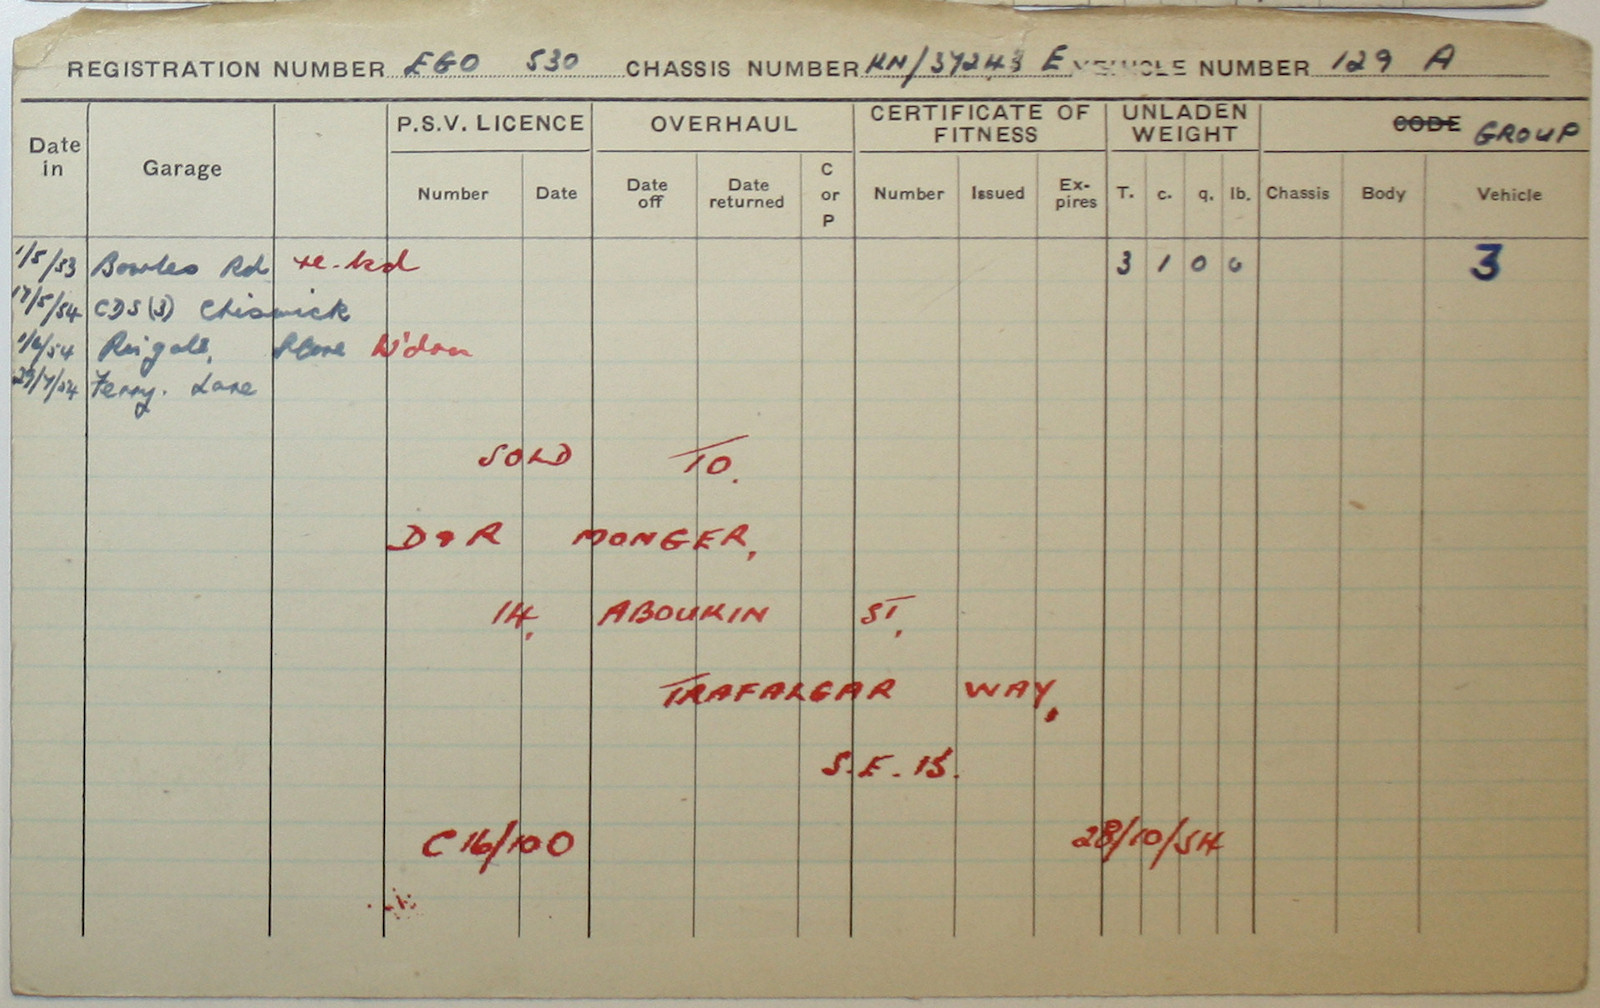 REGISTRATION NUMBER EGO 530 CHASSIS NUMBER KN/37243 E VEHICLE NUMBER 129 A
Date in Garage P.S.V. LICENCE OVERHAUL CERTIFICATE OF FITNESS UNLADEN WEIGHT CODE GROUP
Number Date Date off Date returned C or P Number Issued Ex-pires T. c. q. lb. Chassis Body Vehicle
1/5/53 Bowles Rd re-lsd 3 1 0 0 3
17/5/54 CDS(3) Chiswick
1/6/54 Reigate, Store W'drn
29/7/54 Ferry. Lane
SOLD TO.
D & R MONGER,
14, ABOUKIN ST,
TRAFALGAR WAY,
S.E. 15.
C16/100 28/10/54